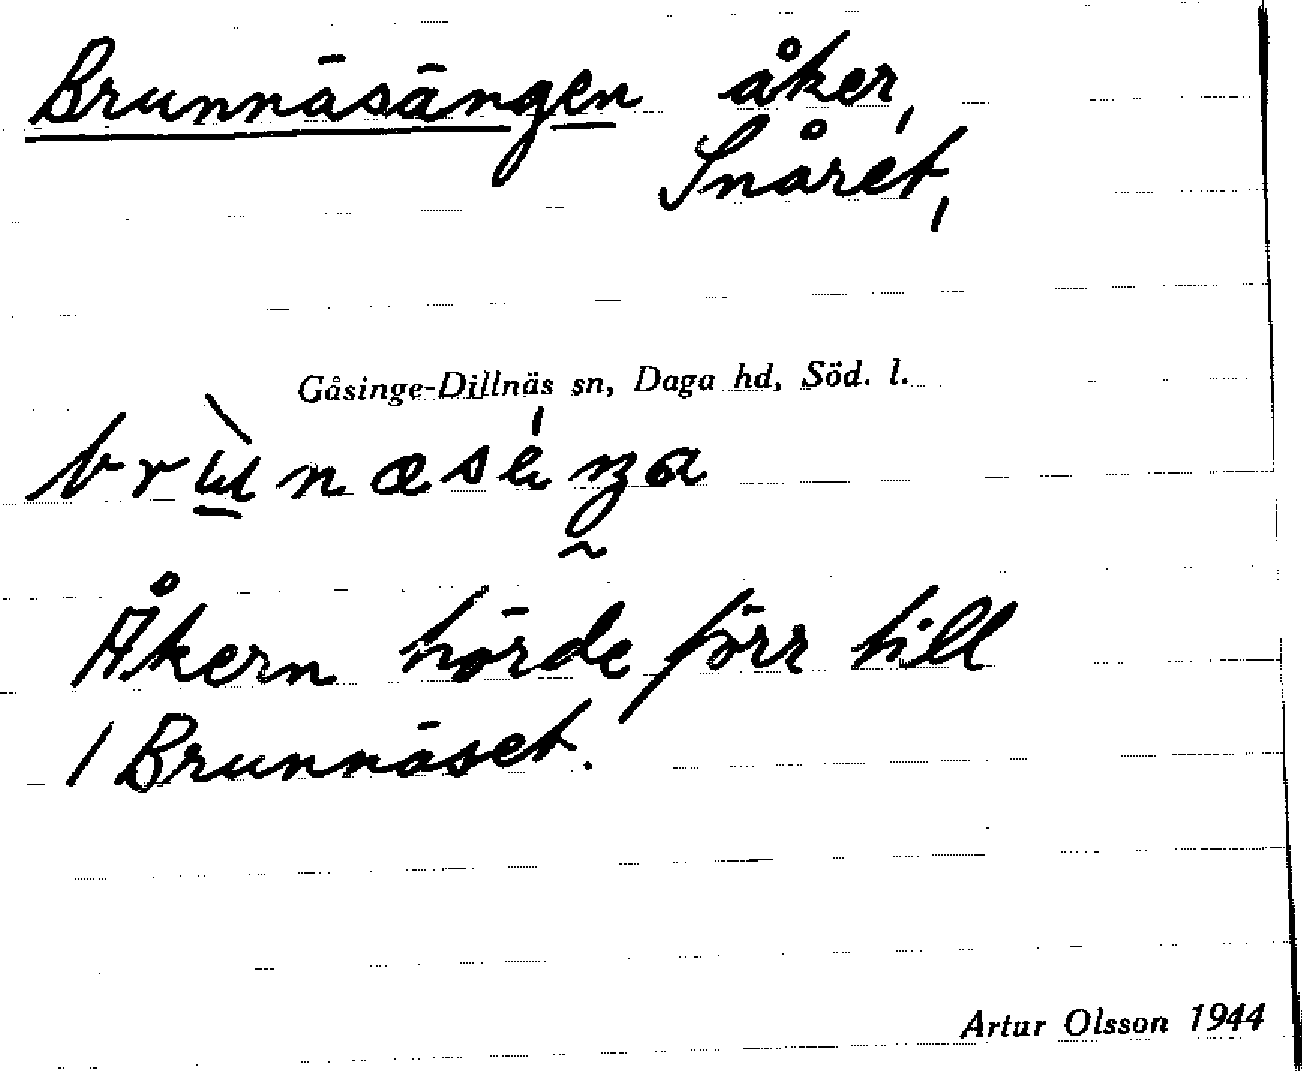 Brunnäsängen åker,
Snåret,
Gåsinge-Dillnäs sn, Daga hd, Söd. l.
Åkern hörde förr till
/ Brunnäset.
Artur Olsson 1944